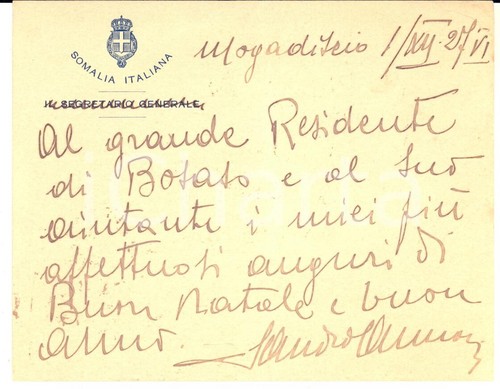 SOMALIA ITALIANA
IL SEGRETARIO GENERALE
Mogadiscio 1/XII 27 VI
Al grande Residente
di Bosaso e al suo
aiutante i miei più
affettuosi auguri di
Buon Natale e buon
anno.
Sandro